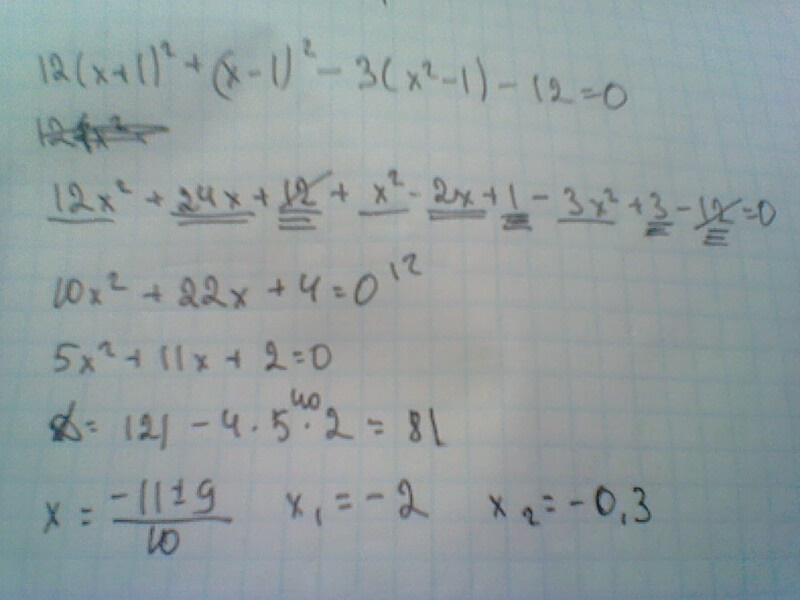 12(x+1)² + (x-1)² - 3(x²-1) - 12 = 0
12x² + 24x + 12 + x² - 2x + 1 - 3x² + 3 - 12 = 0
10x² + 22x + 4 = 0 12
5x² + 11x + 2 = 0
40
D = 121 - 4 · 5 · 2 = 81
x = (-11 ± 9)/10 x₁ = -2 x₂ = -0,3